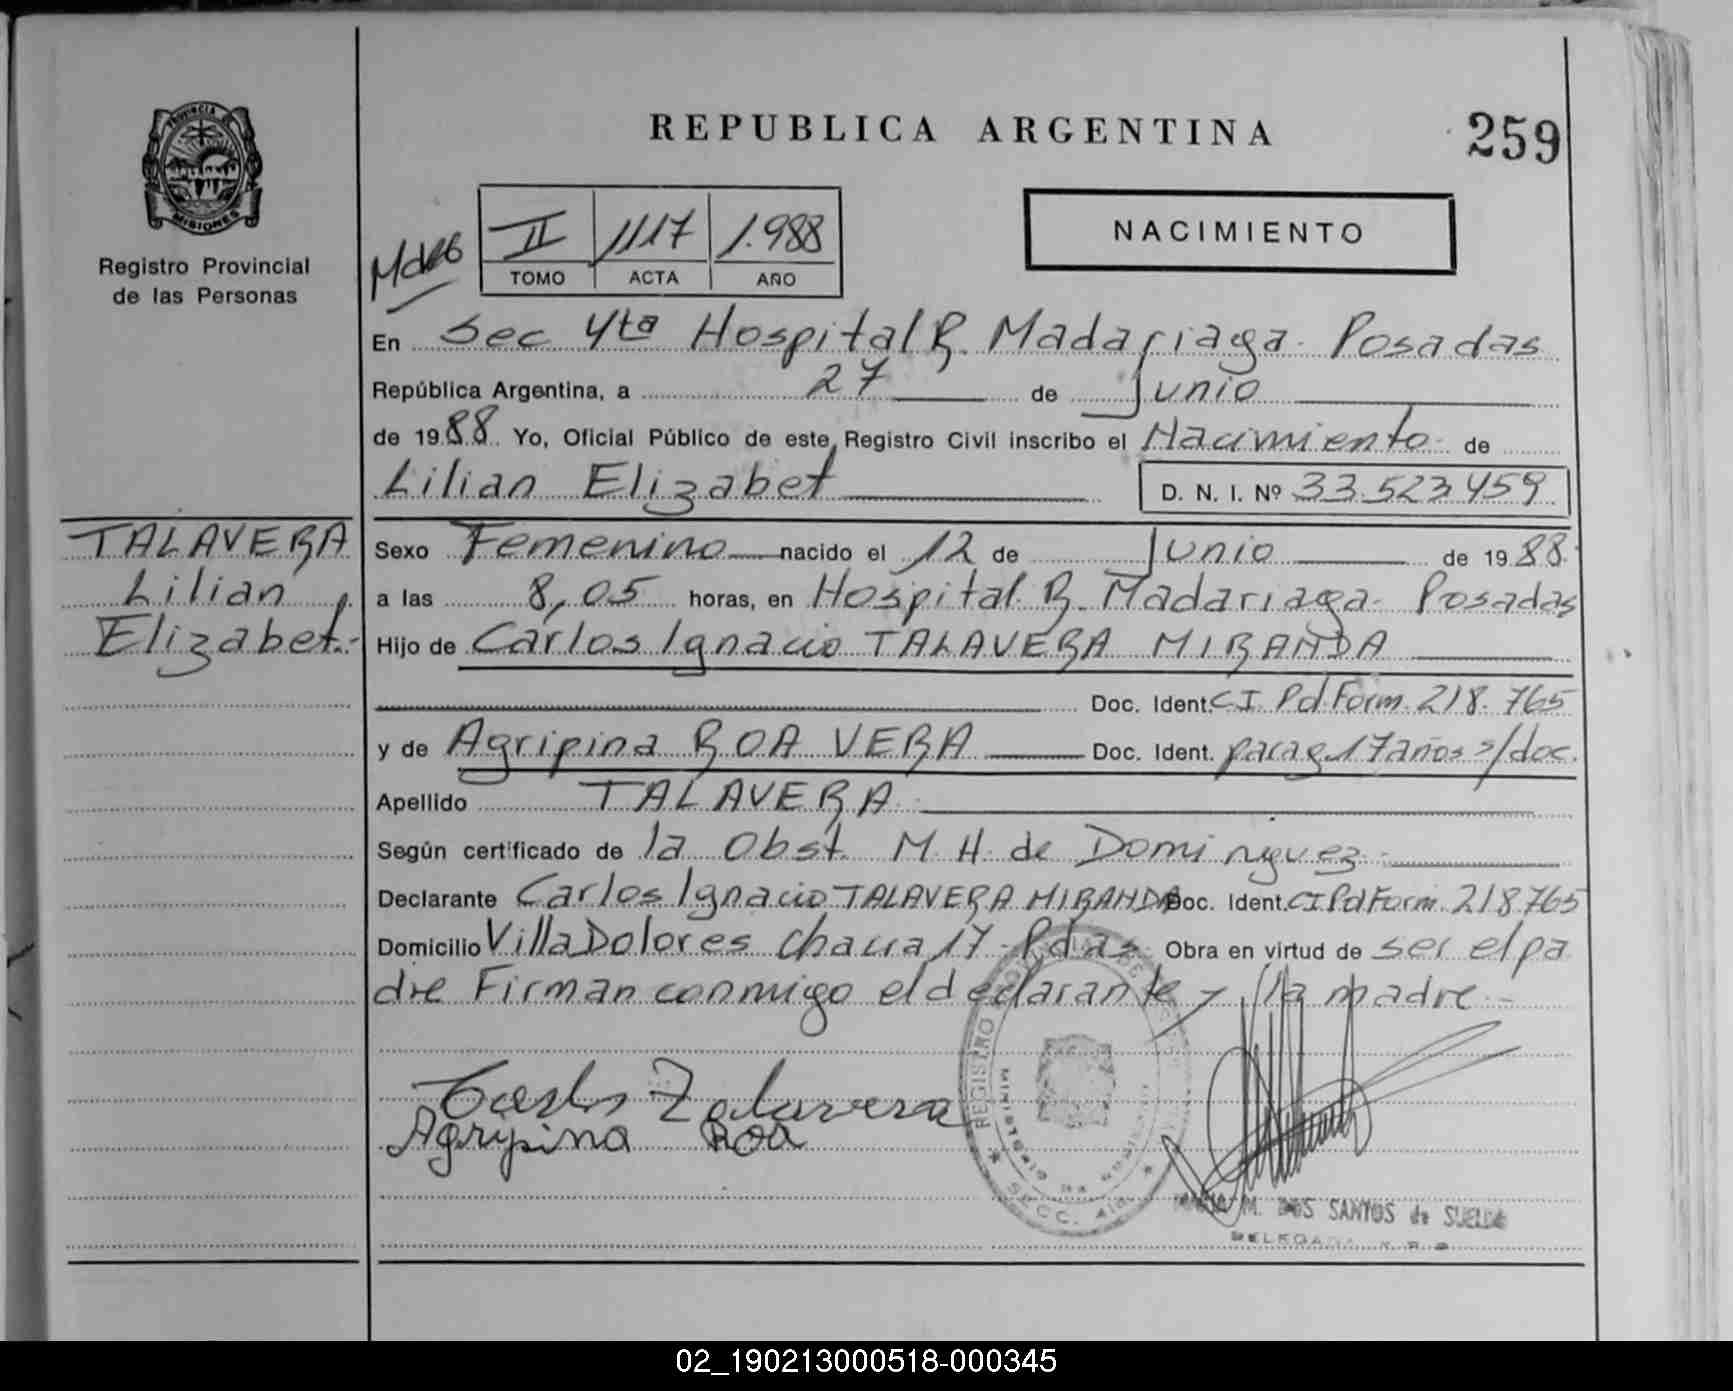 PROVINCIA DE
MISIONES
Registro Provincial
de las Personas
REPUBLICA ARGENTINA
259
II 1117 1.988
TOMO ACTA AÑO
NACIMIENTO
En Sec 4ta Hospital R. Madariaga. Posadas
República Argentina, a 27 de Junio
de 1988 Yo, Oficial Público de este Registro Civil inscribo el Nacimiento de
Lilian Elizabet
D. N. I. Nº 33.523.459
TALAVERA
Lilian
Elizabet.-
Sexo Femenino nacido el 12 de Junio de 1988.
a las 8,05 horas, en Hospital R. Madariaga. Posadas
Hijo de Carlos Ignacio TALAVERA MIRANDA
Doc. Ident. CI Pd Form. 218.765
y de Agripina ROA VERA Doc. Ident. parag. 17 años s/doc.
Apellido TALAVERA
Según certificado de la Obst. M. H. de Dominguez
Declarante Carlos Ignacio TALAVERA MIRANDA Doc. Ident. CI Pd Form. 218765
Domicilio Villa Dolores chacra 17 - Pdas. Obra en virtud de ser el pa
dre Firman conmigo el declarante y la madre.-
Carlos Talavera
Agripina Roa
REGISTRO
MINISTERIO DE GOBIERNO
SECC. 4ta.
M. DOS SANTOS de SUELDO
DELEGADA
02_190213000518-000345